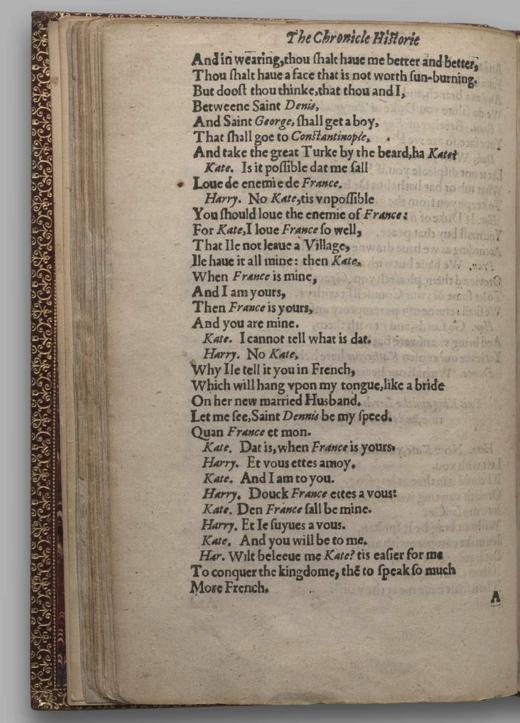 The Chronicle Hiſtorie
And in wearing,thou ſhalt haue me better and better,
Thou ſhalt haue a face that is not worth ſun-burning.
But dooſt thou thinke,that thou and I,
Betweene Saint Denis,
And Saint George, ſhall get a boy,
That ſhall goe to Conſtantinople,
And take the great Turke by the beard,ha Kate?
Kate. Is it poſſible dat me ſall
Loue de enemie de France.
Harry. No Kate,tis vnpoſſible
You ſhould loue the enemie of France:
For Kate,I loue France ſo well,
That Ile not leaue a Village,
Ile haue it all mine: then Kate,
When France is mine,
And I am yours,
Then France is yours,
And you are mine.
Kate. I cannot tell what is dat.
Harry. No Kate,
Why Ile tell it you in French,
Which will hang vpon my tongue,like a bride
On her new married Husband.
Let me ſee,Saint Dennis be my ſpeed.
Quan France et mon.
Kate. Dat is, when France is yours.
Harry. Et vous ettes amoy.
Kate. And I am to you.
Harry. Douck France ettes a vous:
Kate. Den France ſall be mine.
Harry. Et Ie ſuyues a vous.
Kate. And you will be to me.
Har. Wilt beleeue me Kate? tis eaſier for me
To conquer the kingdome, thē to ſpeak ſo much
More French.
A